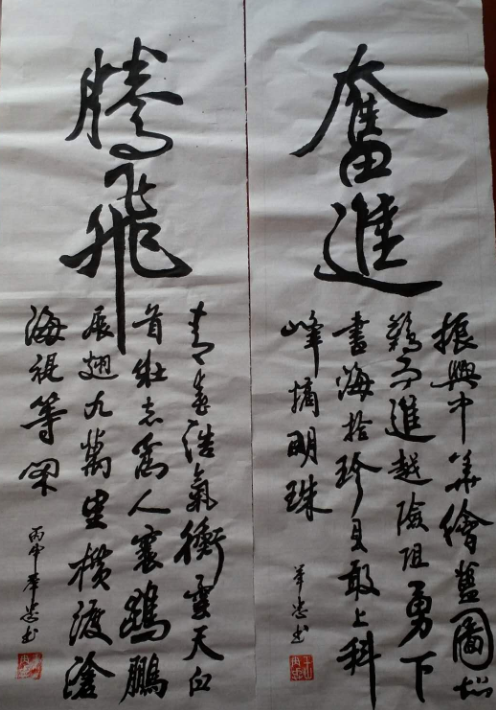 奮進
振興中華繪藍圖知
難而進越險阻勇下
書海拾珍貝敢上科
峰摘明珠
忠书
騰飛
青春浩氣衝雲天白
首壯志寓人寰鵬
展翅九萬里橫渡滄
海視等閑
丙申忠书